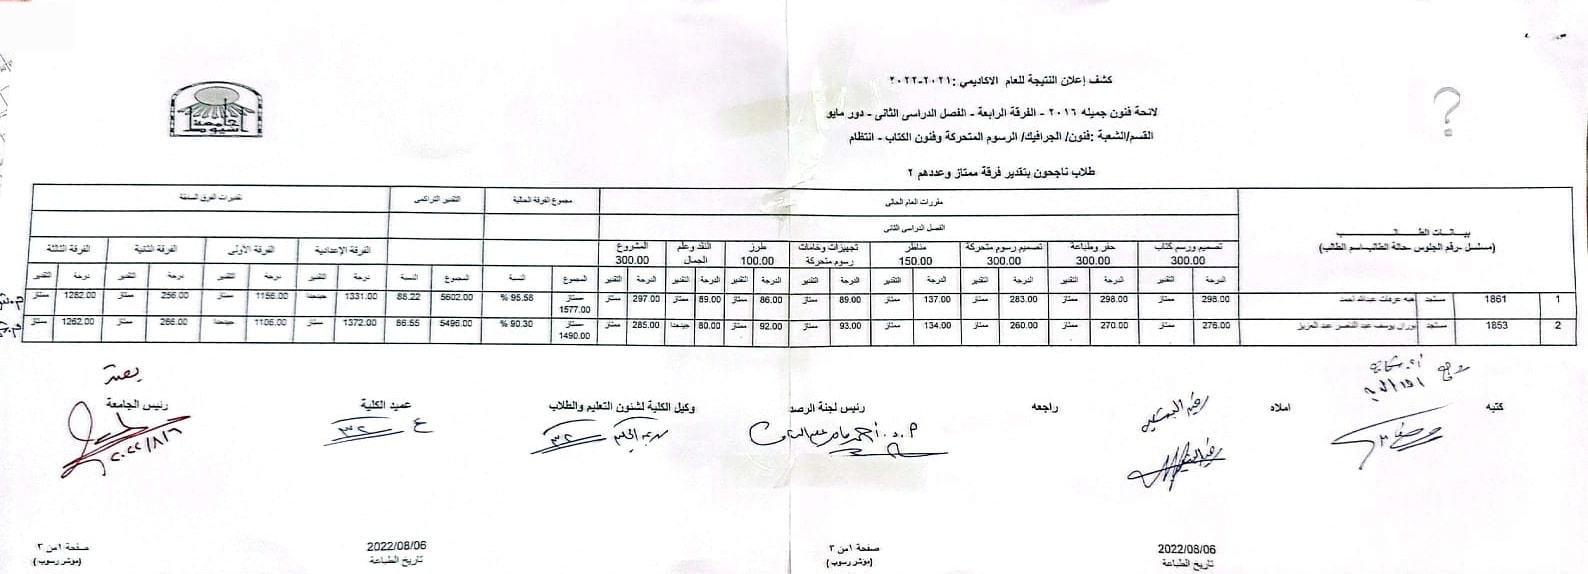 كشف إعلان النتيجة للعام الاكاديمي :٢٠٢١-٢٠٢٢
لائحة فنون جميله ٢٠١٦ - الفرقة الرابعة - الفصل الدراسى الثانى - دور مايو
القسم/الشعبة :فنون/ الجرافيك/ الرسوم المتحركة وفنون الكتاب - انتظام
طلاب ناجحون بتقدير فرقة ممتاز وعددهم ٢
جامعة أسيوط
بيانات الطالب
(مسلسل -رقم الجلوس -حالة الطالب-اسم الطالب)
مقررات العام الحالى
مجموع الفرقة الحالية
التقدير التراكمى
تقديرات الفرق السابقة
الفصل الدراسى الثانى
تصميم ورسم كتاب 300.00
حفر وطباعة 300.00
تصميم رسوم متحركة 300.00
مناظر 150.00
تجهيزات وخامات رسوم متحركة
طرز 100.00
النقد وعلم الجمال
المشروع 300.00
الفرقة الإعدادية
الفرقة الأولى
الفرقة الثانية
الفرقة الثالثة
الدرجة التقدير الدرجة التقدير الدرجة التقدير الدرجة التقدير الدرجة التقدير الدرجة التقدير الدرجة التقدير الدرجة التقدير المجموع النسبة المجموع النسبة درجة التقدير درجة التقدير درجة التقدير درجة التقدير
1 1861 مستجد هبه عرفات عبدالله احمد 298.00 ممتاز 298.00 ممتاز 283.00 ممتاز 137.00 ممتاز 89.00 ممتاز 86.00 ممتاز 89.00 ممتاز 297.00 ممتاز ممتاز 1577.00 95.58 % 5602.00 88.22 1331.00 جيدجدا 1156.00 ممتاز 256.00 ممتاز 1282.00 ممتاز
2 1853 مستجد نوران يوسف عبد الناصر عبد العزيز 276.00 ممتاز 270.00 ممتاز 260.00 ممتاز 134.00 ممتاز 93.00 ممتاز 92.00 ممتاز 80.00 جيدجدا 285.00 ممتاز ممتاز 1490.00 90.30 % 5496.00 86.55 1372.00 ممتاز 1106.00 جيدجدا 266.00 ممتاز 1262.00 ممتاز
كتبه املاه راجعه رئيس لجنة الرصد وكيل الكلية لشئون التعليم والطلاب عميد الكلية رئيس الجامعة
٢٠٢٢/٨/٦
2022/08/06
تاريخ الطباعة
صفحة ١من ٣
(مؤشر رسوب)
2022/08/06
تاريخ الطباعة
صفحة ١من ٣
(مؤشر رسوب)